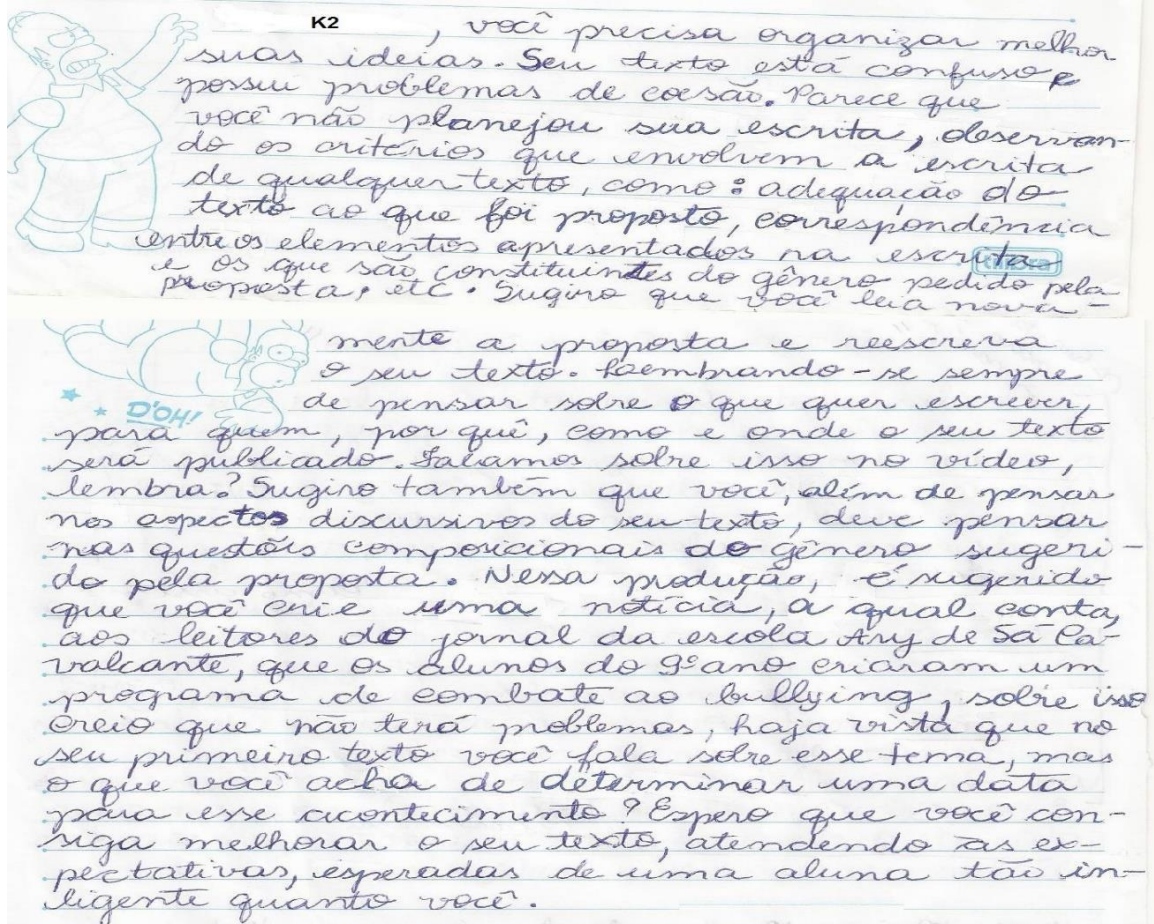 K2, você precisa organizar melhor
suas ideias. Seu texto está confuso e
possui problemas de coesão. Parece que
você não planejou sua escrita, observan-
do os critérios que envolvem a escrita
de qualquer texto, como: adequação do
texto ao que foi proposto, correspondência
entre os elementos apresentados na escrita
tilibra
e os que são constituintes do gênero pedido pela
proposta, etc. Sugiro que você leia nova-
mente a proposta e reescreva
o seu texto. Lembrando-se sempre
de pensar sobre o que quer escrever,
D'OH!
para quem, por quê, como e onde o seu texto
será publicado. Falamos sobre isso no vídeo,
lembra? Sugiro também que você, além de pensar
nos aspectos discursivos do seu texto, deve pensar
nas questões composicionais do gênero sugeri-
do pela proposta. Nessa produção, é sugerido
que você crie uma notícia, a qual conta,
aos leitores do jornal da escola Ary de Sá Ca-
valcante, que os alunos do 9º ano criaram um
programa de combate ao bullying, sobre isso
creio que não terá problemas, haja vista que no
seu primeiro texto você fala sobre esse tema, mas
o que você acha de determinar uma data
para esse acontecimento? Espero que você con-
siga melhorar o seu texto, atendendo as ex-
pectativas, esperadas de uma aluna tão in-
ligente quanto você.